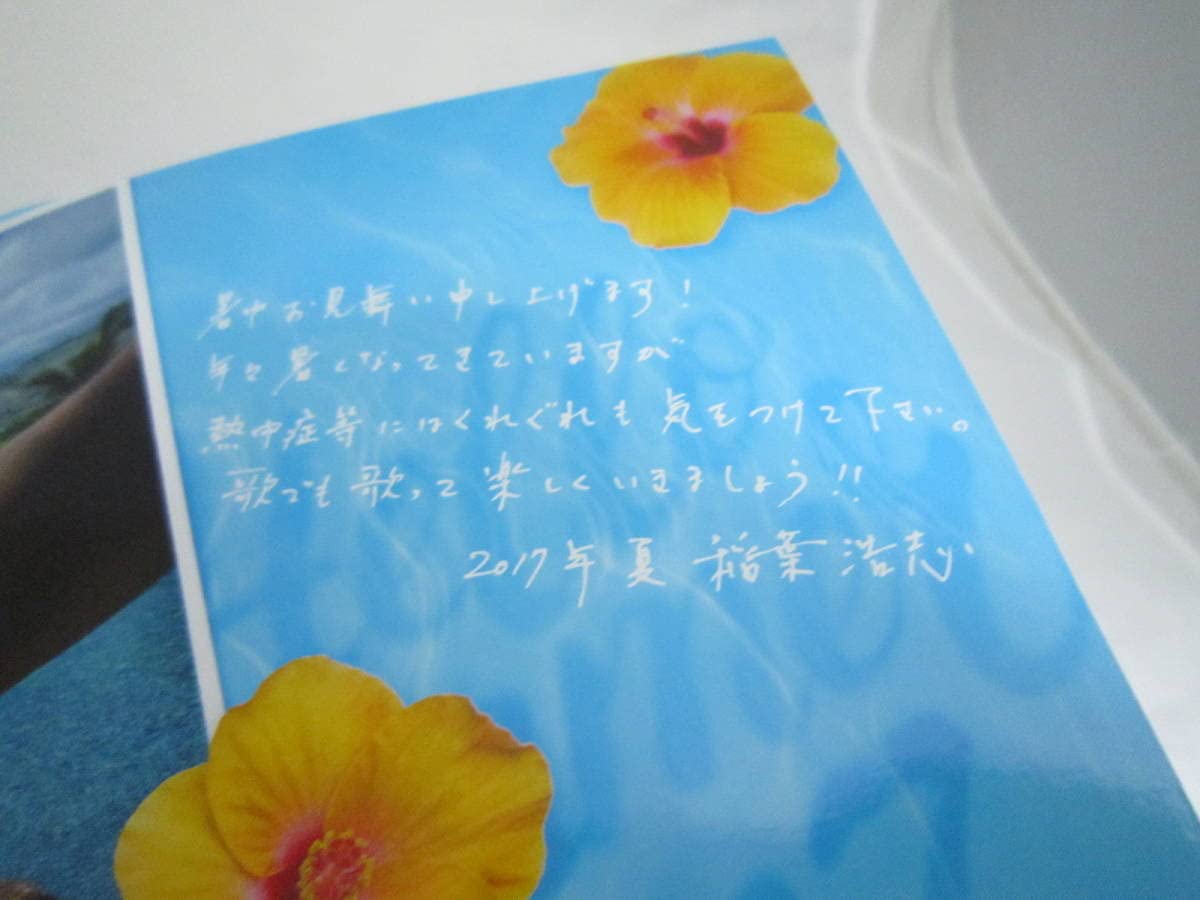 暑中お見舞い申し上げます!
年々暑くなってきていますが
熱中症等にはくれぐれも気をつけて下さい。
歌でも歌って楽しくいきましょう!!
2017年 夏 稲葉浩志